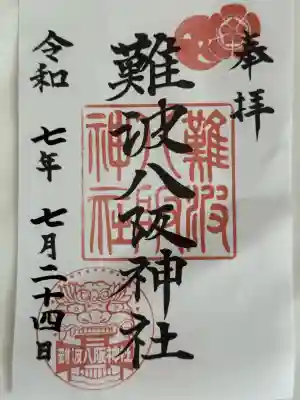 奉拝
難波八阪神社
難波
八阪
神社
令和七年七月二十四日
難波八阪神社